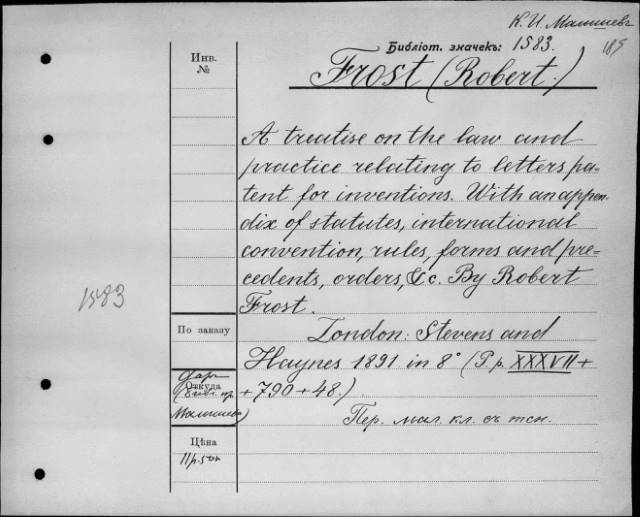 К. И. Малышевъ
Библіот. значекъ: 1583.
185
Инв.
№
Frost (Robert.)
A treatise on the law and
practice relating to letters pa-
tent for inventions. With an appen-
dix of statutes, international
convention, rules, forms and pre-
cedents, orders, &c. By Robert
Frost.
1583
По заказу
London: Stevens and
Haynes 1891 in 8° (P.p. XXXVII +
Откуда
+ 790 + 48.)
Малышева)
Пер. мал. кл. съ тсн.
Цѣна
11 р. 50 к